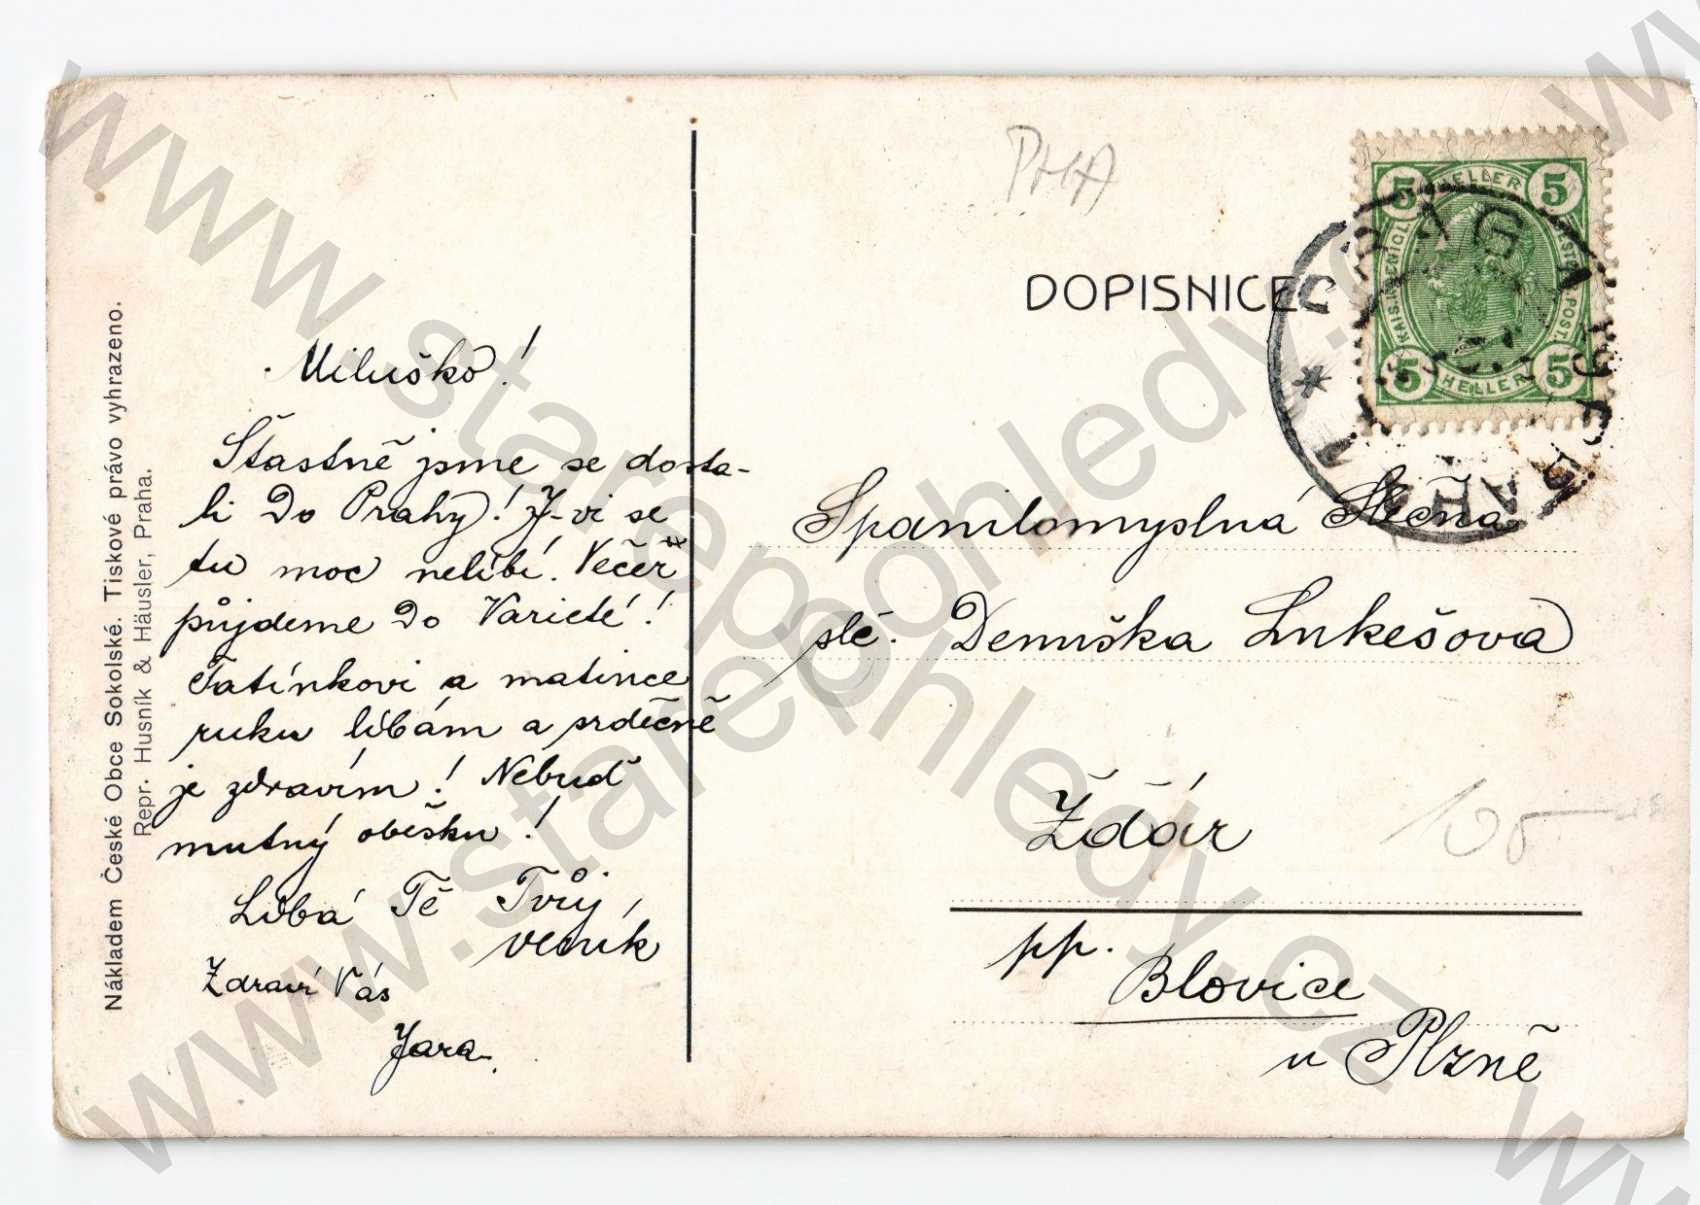 Nákladem České Obce Sokolské. Tiskové právo vyhrazeno.
Repr. Husník & Häusler, Praha.
Miluško!
Štastně jsme se dosta-
li do Prahy! J-vi se
tu moc nelíbí. Večeř
půjdeme do Varieté!
Tatínkovi a matince
ruku líbám a srdečně
je zdravím! Nebuď
mutný obešku!
Líbá Tě Tvůj
věčník
Zdraví Vás
Jara.
PHA
DOPISNICE
5 HELLER 5
5 HELLER 5
Spanilomyslná Slečna
slč. Denuška Lukešova
Žďár
pp.
Blovice
u Plzně
www.starepohledy.cz
www.starepohledy.cz